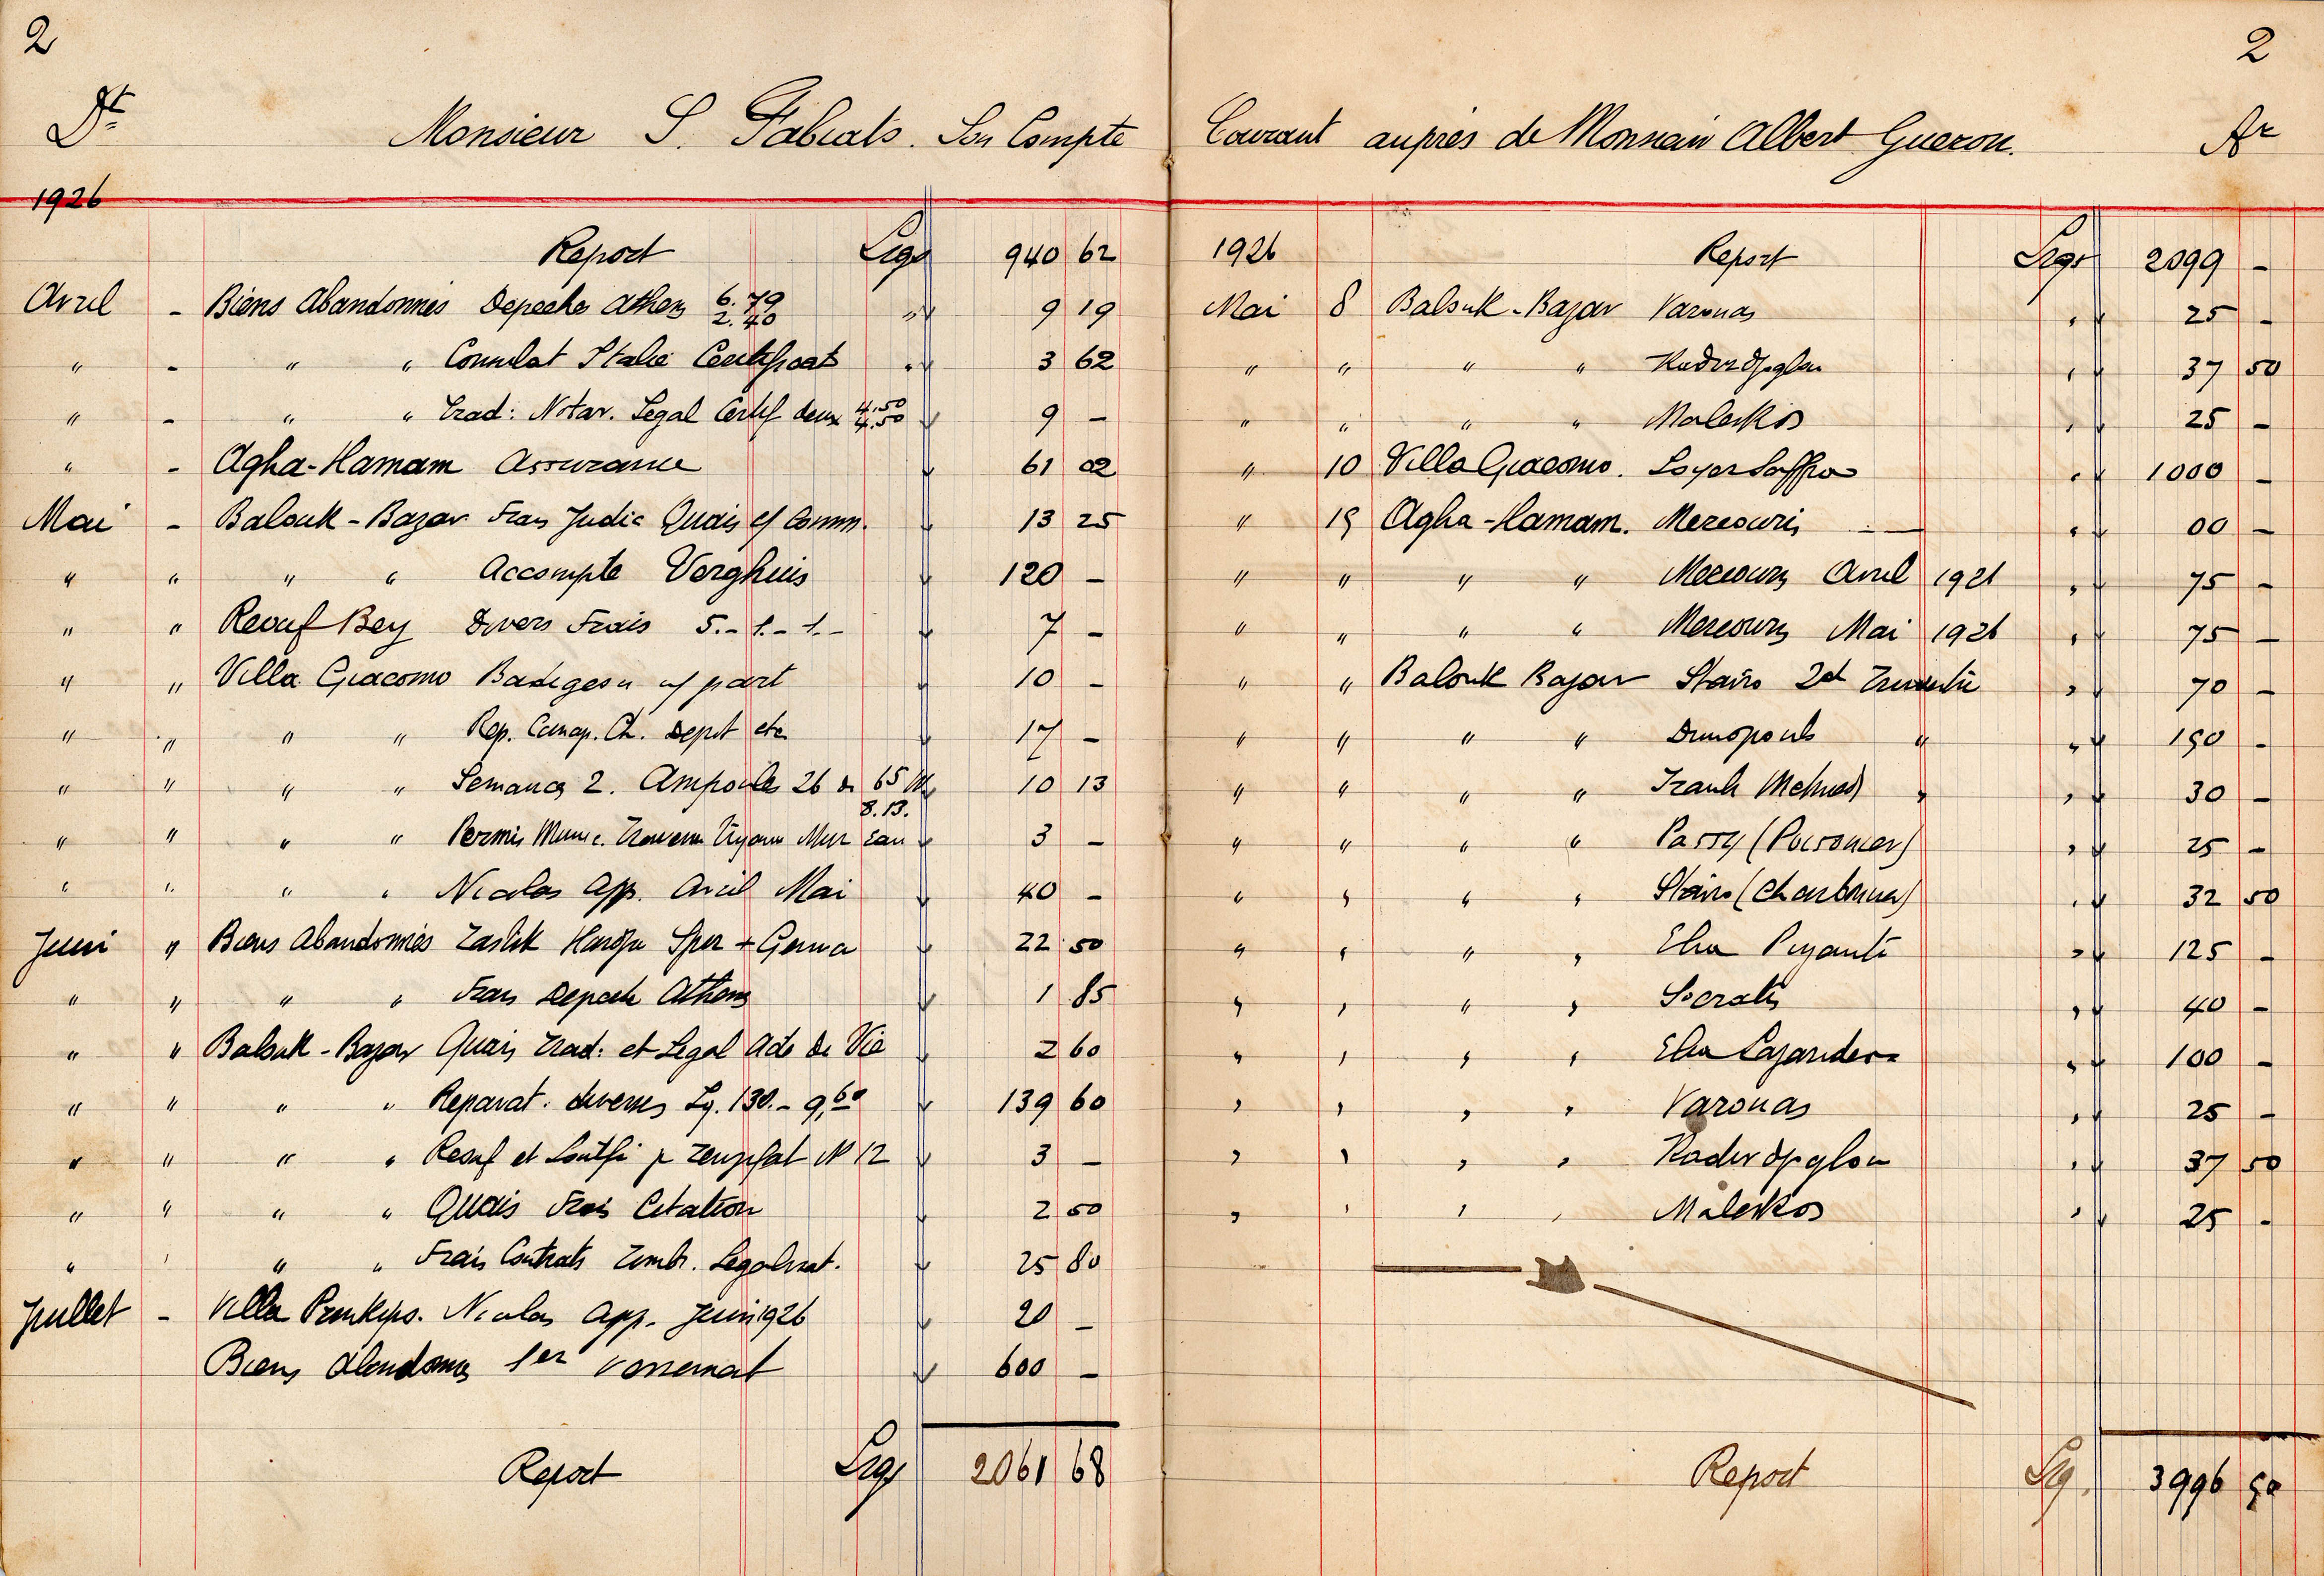 2
Dt Monsieur S. Fabiats. Son Compte
1926
Report Ltqs 940 62
Avril - Biens Abandonnés Depeche Athens 6.79 2.40 " 9 19
" - " " Consulat Italie Certificat " 3 62
" - " " Trad: Notar. Legal Certif deux 4.50 4.50 9 -
" - Agha-Hamam Assurance 61 02
Mai - Balouk-Bazar Frais Judic Quais Comm. 13 25
" " " " Accompte Verghuis 120 -
" " Reouf Bey Divers Frais 5.- 1.- 1.- 7 -
" " Villa Giacomo Badigeon part 10 -
" " " " Rep. Canap. Ch. Depot etc 17 -
" " " " 2. Ampoules 26 65 8.13. 10 13
" " " " Permis Mur eau 3 -
" " " " Nicolas App. Avril Mai 40 -
Juin " Biens Abandonnés 22 50
" " " " Frais Depeche Athens 1 85
" " Balouk-Bazar Quais Trad: et Legal Acte de Vie 2 60
" " " " Reparat. diverses Lq. 130.- 9,60 139 60
" " " " Reouf et Loutfi p N 12 3 -
" " " " Quais Frais Citation 2 50
" ' " " Frais Contrats Timbr. Legalisat. 25 80
Juillet - Villa Prinkips. Nicolas App. Juin 1926 20 -
Biens Abandonnés 1er versement 600 -
Report Ltqs 2061 68
2
Courant auprès de Monsieur Albert Gueron. Ar
1926 Report Ltqs 2099 -
Mai 8 Balouk-Bazar Varonas " 25 -
" " " " Kadiroglou " 37 50
" " " " Maleskos " 25 -
" 10 Villa Giacomo. Loyer Saffra " 1000 -
" 19 Agha-Hamam. Mercouris " 00 -
" " " " Mercouris Avril 1926 " 75 -
" " " " Mercouris Mai 1926 " 75 -
" " Balouk Bazar Stavro 70 -
" " " " Dimopoulo " " 150 -
" " " " Mehmed " " 30 -
" " " " Passy (Poissonier) " 25 -
" " " " Stavro (Charbonier) " 32 50
" " " " Elia " 125 -
" " " " Socratis " 40 -
" " " " Elia " 100 -
" " " " Varonas " 25 -
" " " " Kadiroglou " 37 50
" " " " Maleskos " 25 -
Report Lq. 3996 50